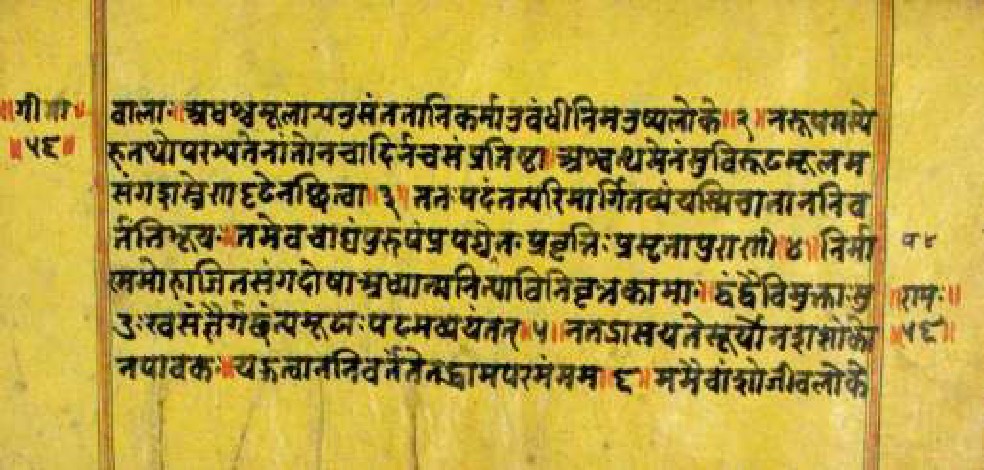 ॥गीता॥
॥५६॥
वालाः अधश्चमूलान्यनुसंततानिकर्मानुबंधीनिमनुष्यलोके॥२॥नरूपमस्ये
हतथोपलभ्यतेनांतोनचादिर्नचसंप्रतिष्ठा॥अश्वत्थमेनंसुविरूढमूलम
संगशस्त्रेणदृढेनछित्वा॥३॥ततःपदंतत्परिमार्गितव्यंयस्मिन्गताननिव
र्तंतिभूयः॥तमेवचाद्यंपुरुषंप्रपद्येतःप्रवृत्तिःप्रसृतापुराणी॥४॥निर्मा
नमोहाजितसंगदोषाअध्यात्मनित्याविनिवृत्तकामाः॥द्वंद्वैविमुक्ताःसु
दुःखसंज्ञैर्गछंत्यमूढाःपदमव्ययंतत्॥५॥नतद्भासयतेसूर्योनशशांको
नपावकः॥यद्गत्वाननिवर्तंतेतद्धामपरमंमम॥६॥ममैवांशोजीवलोके
॥रामः॥
॥५६॥